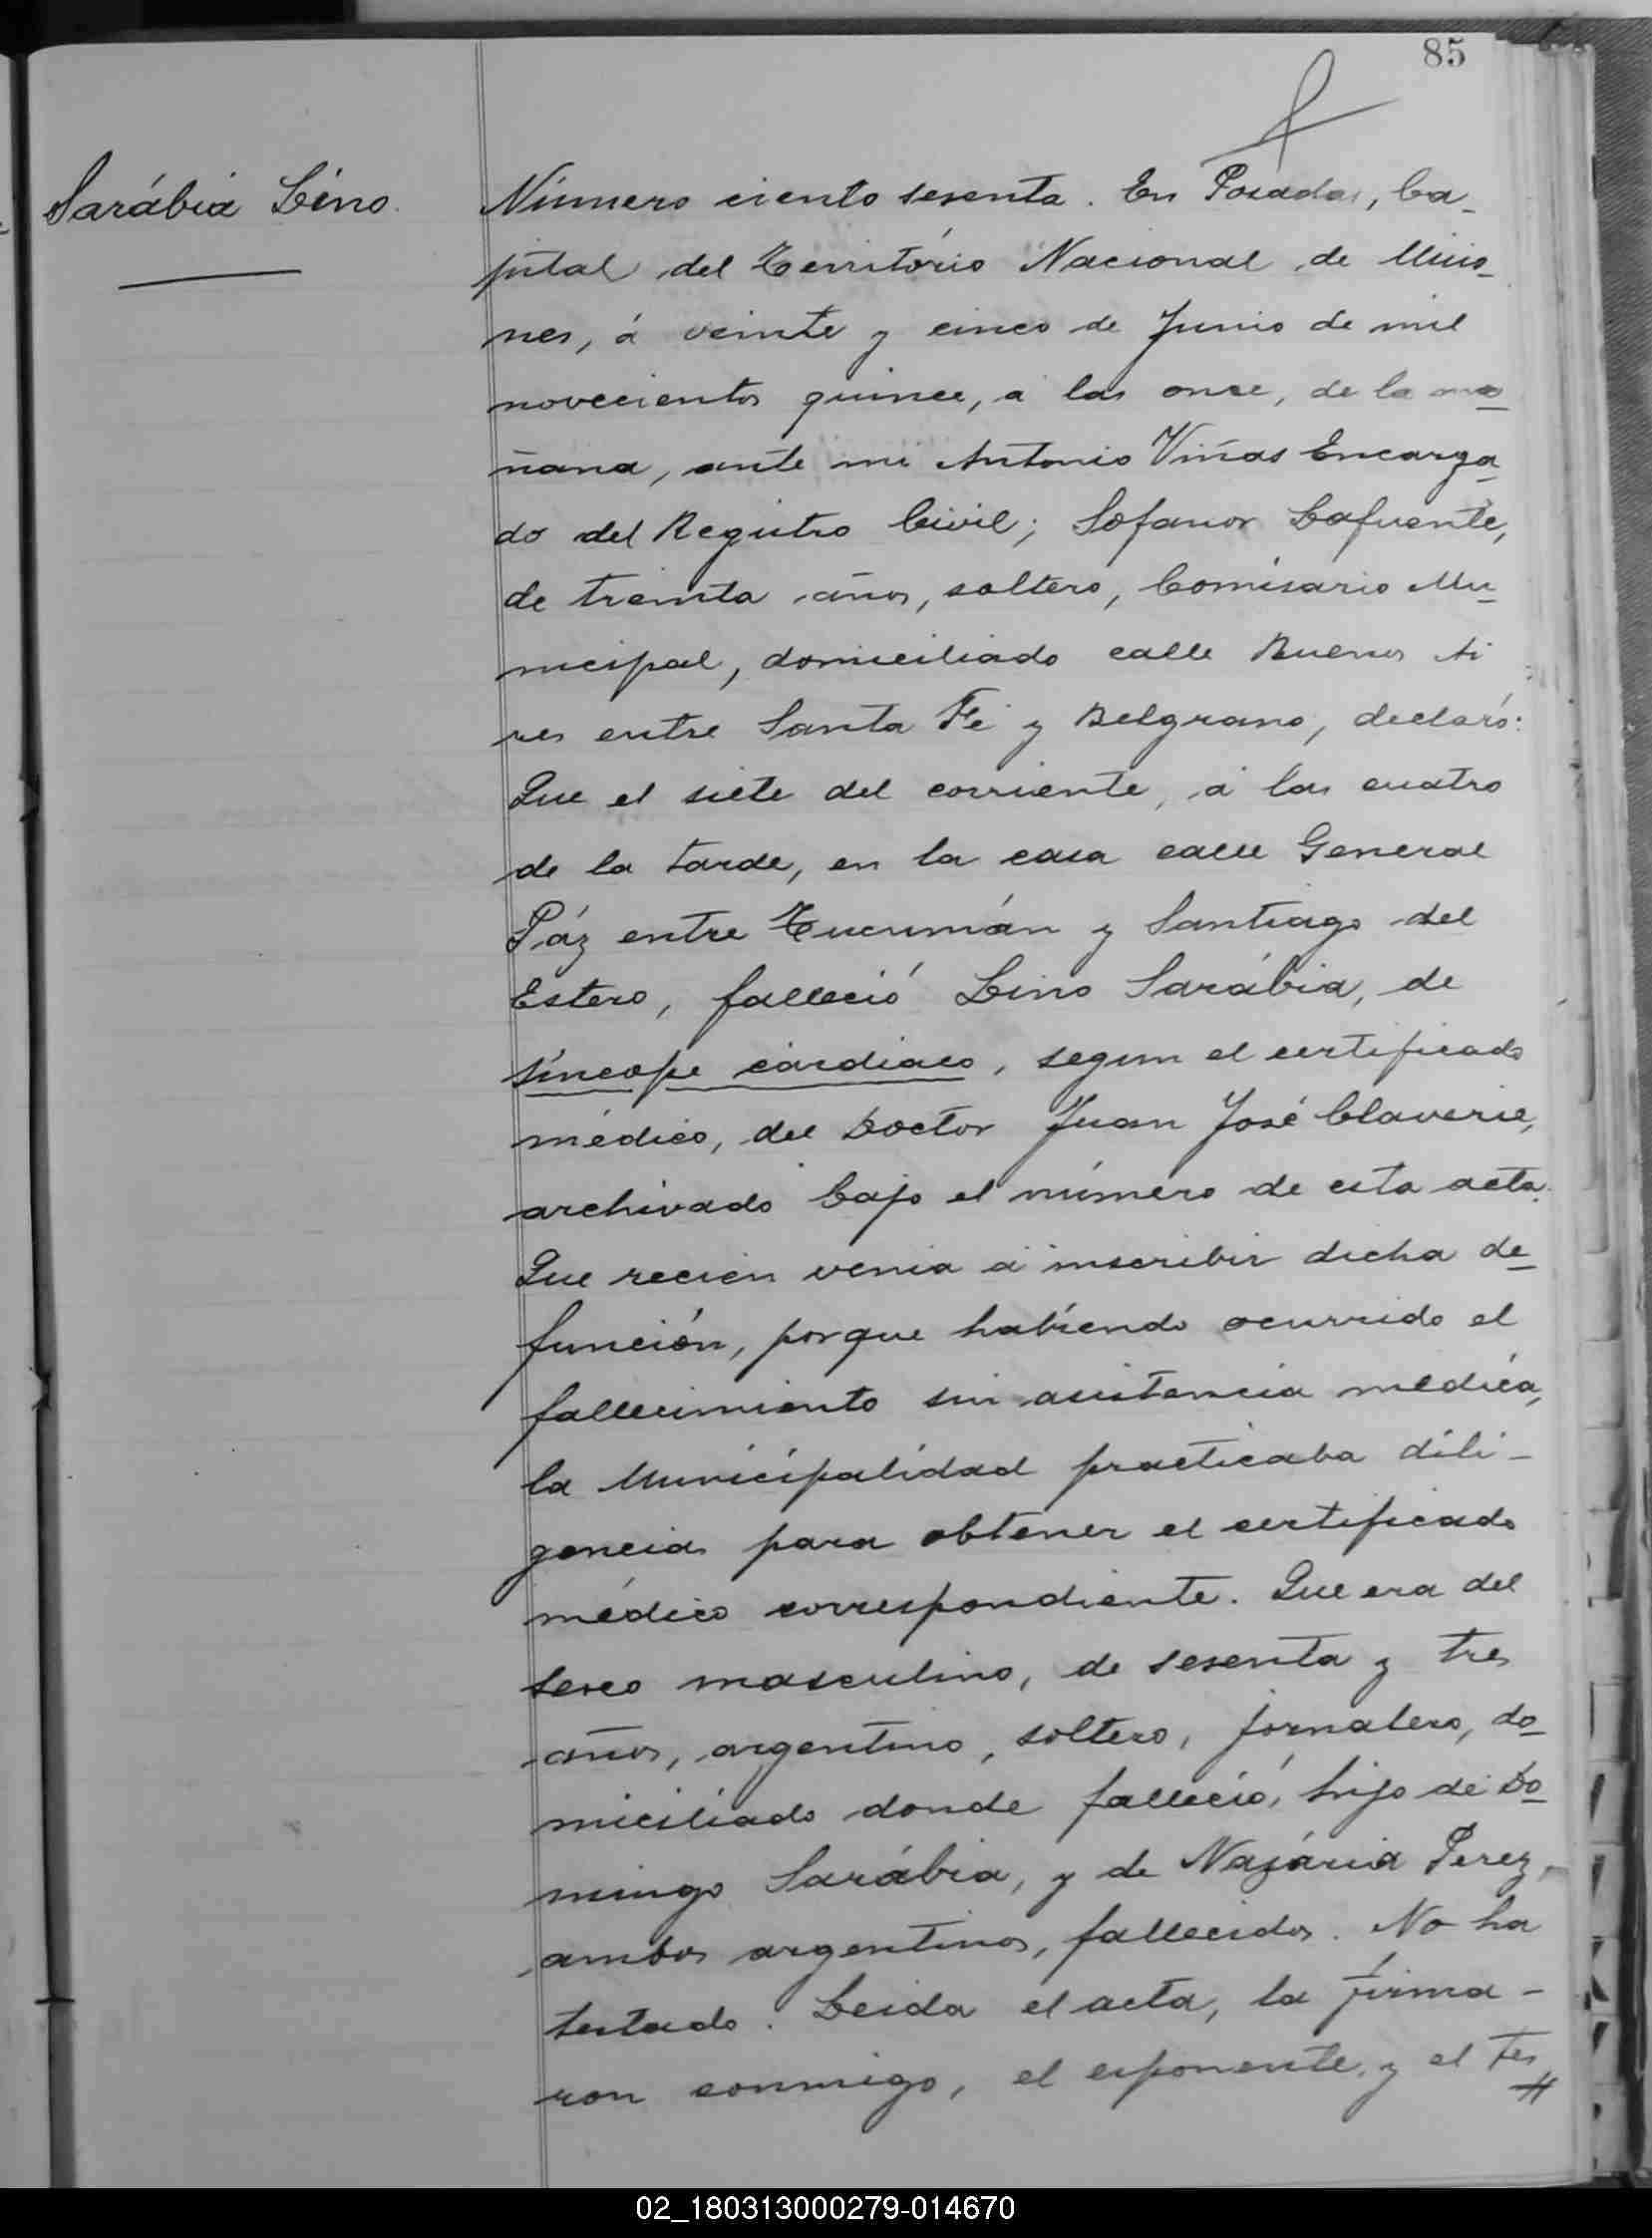 85
Sarábia Lino.
Número ciento sesenta. En Posadas, Ca-
pital del Território Nacional de Misio-
nes, á veinte y cinco de Junio de mil
novecientos quince, a las once, de la ma-
ñana, ante mi Antonio Viñas Encarga-
do del Registro Civil; Sofanor Lafuente,
de treinta años, soltero, Comisario Mu-
nicipal, domiciliado calle Buenos Ai
res entre Santa Fé y Belgrano, declaró:
Que el siete del corriente, á las cuatro
de la tarde, en la casa calle General
Páz entre Tucumán y Santiago del
Estero, falleció Lino Sarábia, de
síncope cárdiaco, segun el certificado
médico, del Doctor Juan José Claverie,
archivado bajo el número de esta acta.
Que recien venia á inscribir dicha de-
función, porque habiendo ocurrido el
fallecimiento sin asistencia médica,
la Municipalidad practicaba dili-
gencias para obtener el certificado
médico correspondiente. Que era del
sexo masculino, de sesenta y tres
años, argentino, soltero, jornalero, do-
miciliado donde falleció, hijo de Do-
mingo Sarábia, y de Nazária Perez,
ambos argentinos, fallecidos. No ha
testado. Leida el acta, la firma-
ron conmigo, el exponente, y el tes
02_180313000279-014670